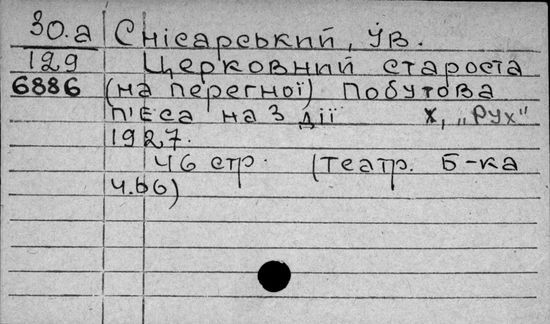 30.a Снісарський, Ів.
129 Церковний староста
6886 (на перегної) побутова
п'єса на 3 дії Х, „Рух"
1927.
46 стр. (театр. Б-ка
ч.66)